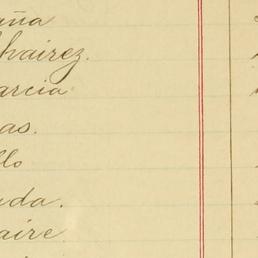 aña
hairez.
arcia
as.
llo
da.
aire